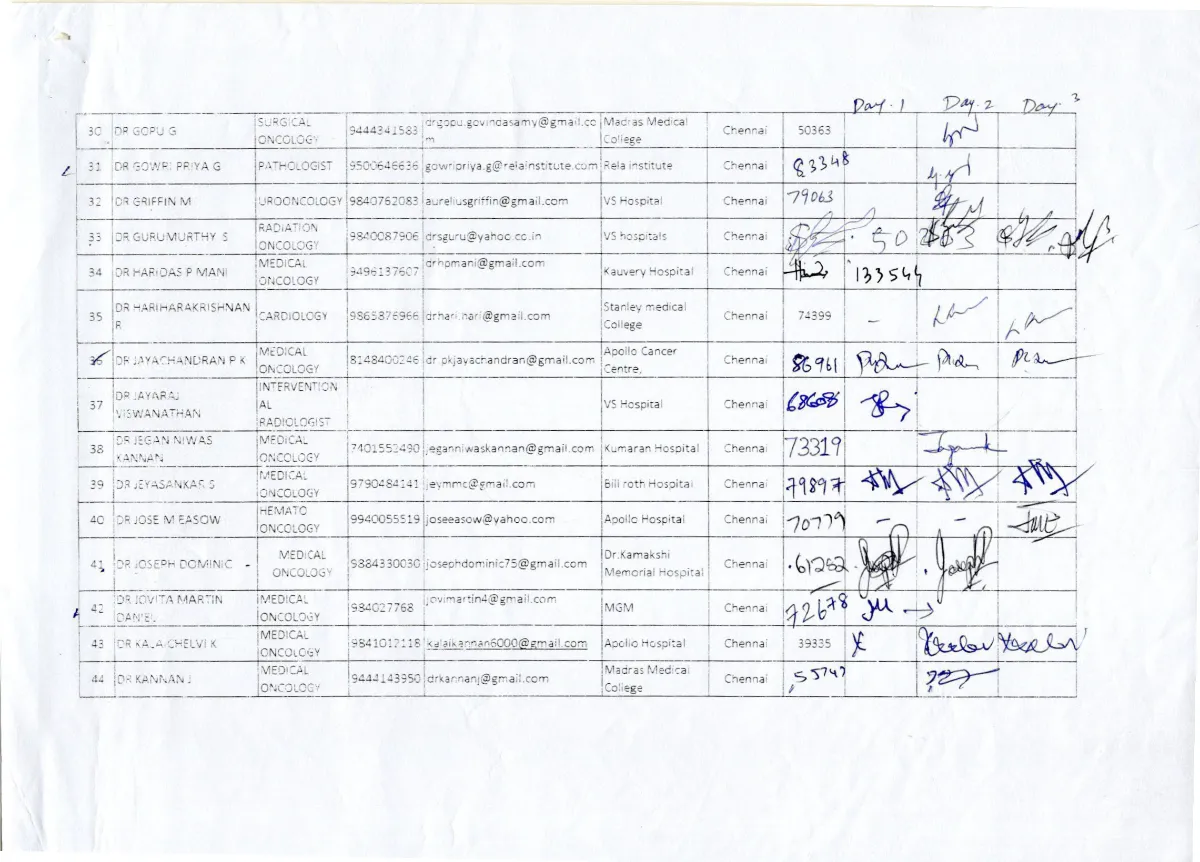 Day. 1 Day. 2 Day. 3
30 DR GOPU G SURGICAL ONCOLOGY 9444341583 drgopu.govindasamy@gmail.com Madras Medical College Chennai 50363
31 DR GOWRI PRIYA G PATHOLOGIST 9500646636 gowripriya.g@relainstitute.com Rela institute Chennai 83348
32 DR GRIFFIN M UROONCOLOGY 9840762083 aureliusgriffin@gmail.com VS Hospital Chennai 79063
33 DR GURUMURTHY S RADIATION ONCOLOGY 9840087906 drsguru@yahoo.co.in VS hospitals Chennai
34 DR HARIDAS P MANI MEDICAL ONCOLOGY 9496137607 drhpmani@gmail.com Kauvery Hospital Chennai 133544
35 DR HARIHARAKRISHNAN R CARDIOLOGY 9865876966 drhari.hari@gmail.com Stanley medical College Chennai 74399 –
36 DR JAYACHANDRAN P K MEDICAL ONCOLOGY 8148400246 dr.pkjayachandran@gmail.com Apollo Cancer Centre, Chennai 86961
37 DR JAYARAJ VISWANATHAN INTERVENTIONAL RADIOLOGIST VS Hospital Chennai 68608
38 DR JEGAN NIWAS KANNAN MEDICAL ONCOLOGY 7401553490 jeganniwaskannan@gmail.com Kumaran Hospital Chennai 73319
39 DR JEYASANKAR S MEDICAL ONCOLOGY 9790484141 jeymmc@gmail.com Bill roth Hospital Chennai 79897
40 DR JOSE M EASOW HEMATO ONCOLOGY 9940055519 joseeasow@yahoo.com Apollo Hospital Chennai 70779 – –
41 DR JOSEPH DOMINIC - MEDICAL ONCOLOGY 9884330030 josephdominic75@gmail.com Dr.Kamakshi Memorial Hospital Chennai 61252 Joseph Joseph
42 DR JOVITA MARTIN DANIEL MEDICAL ONCOLOGY 984027768 jovimartin4@gmail.com MGM Chennai 72678 JM →
43 DR KALAICHELVI K MEDICAL ONCOLOGY 9841012118 kalaikannan6000@gmail.com Apollo Hospital Chennai 39335 X
44 DR KANNAN J MEDICAL ONCOLOGY 9444143950 drkannanj@gmail.com Madras Medical College Chennai 55747